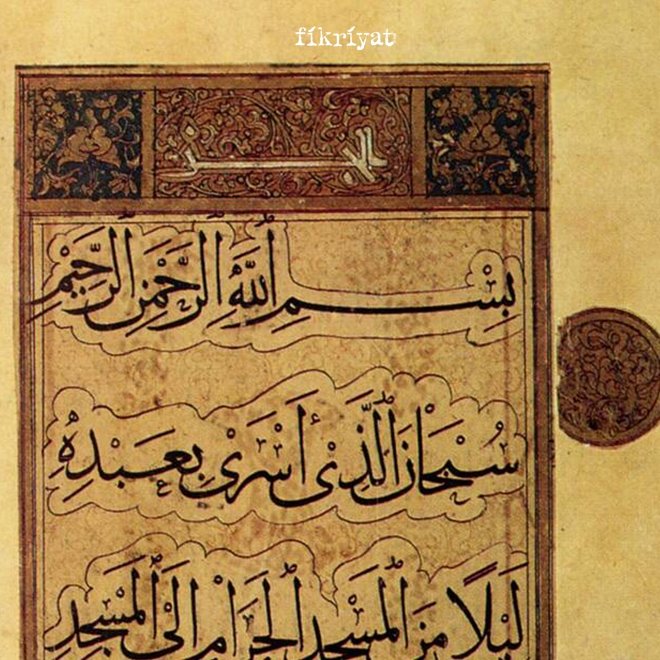 fikriyat
بِسْمِ اللَّهِ الرَّحْمَنِ الرَّحِيمِ
سُبْحَانَ الَّذِي أَسْرَى بِعَبْدِهِ
لَيْلًا مِنَ الْمَسْجِدِ الْحَرَامِ إِلَى الْمَسْجِدِ